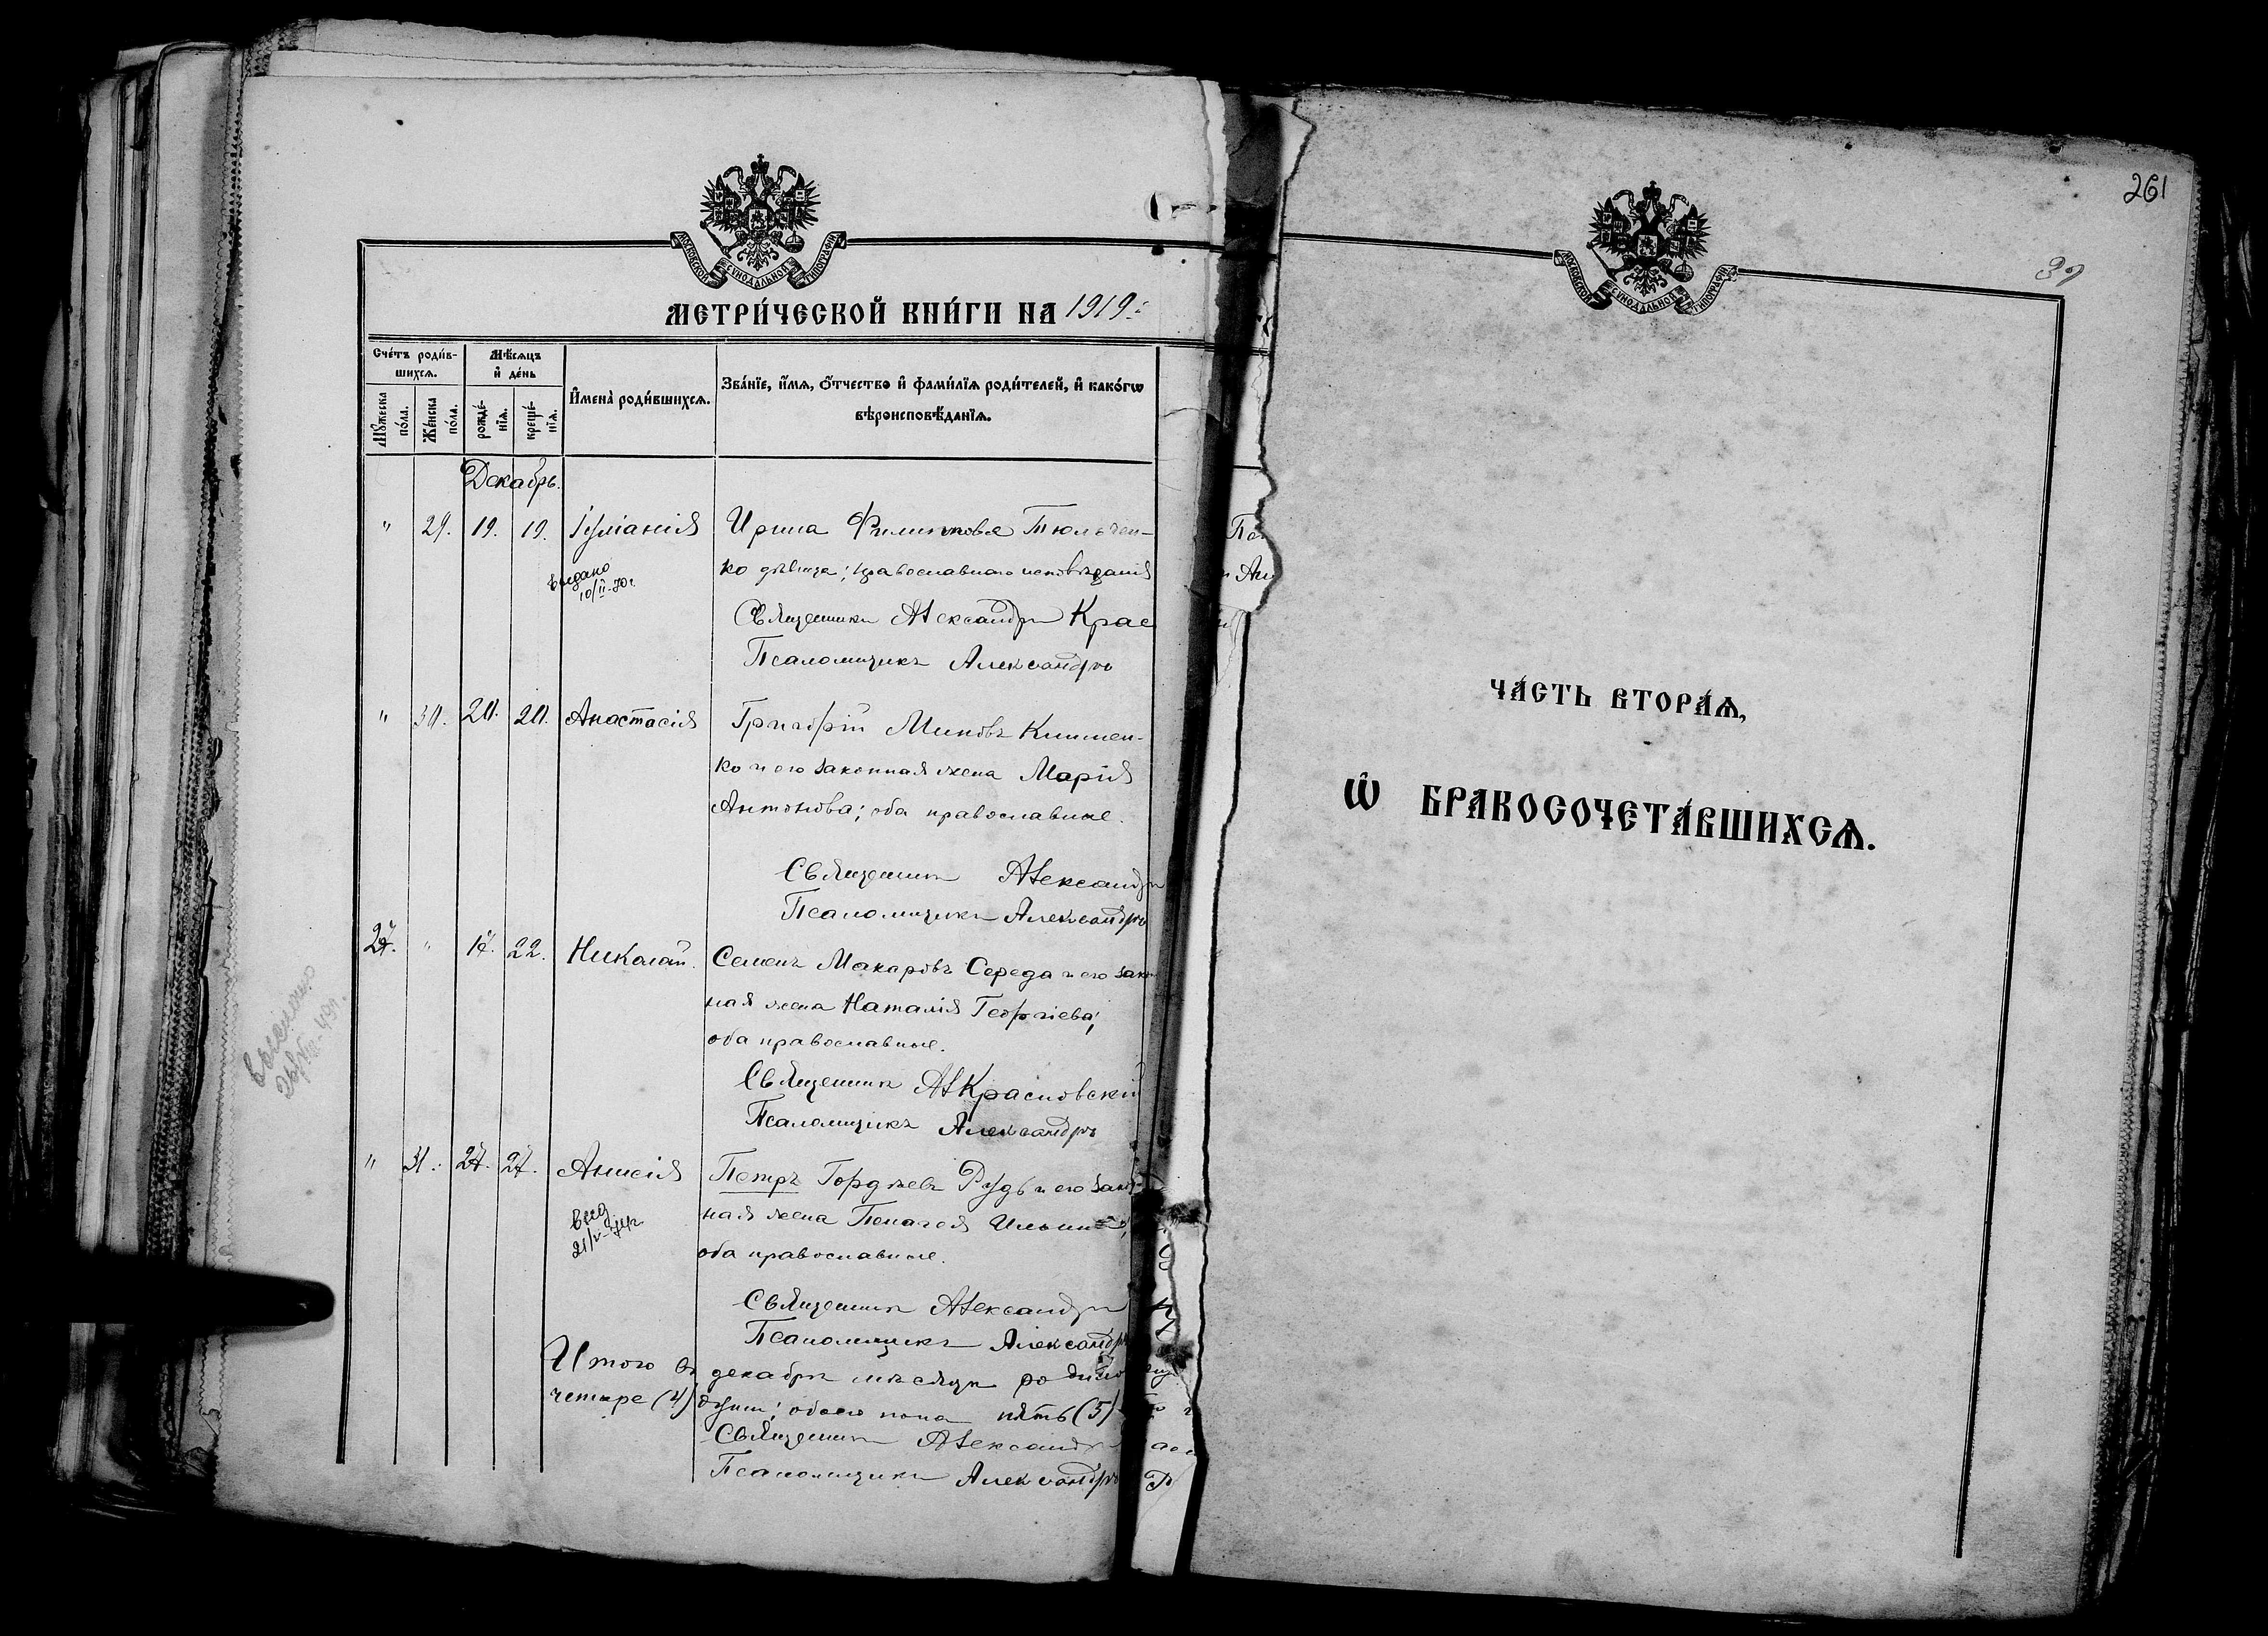 МОСКОВСКОЙ СѴНОДАЛЬНОЙ ТИПОГРАФІИ
МЕТРИ́ЧЕСКОЙ КНИ́ГИ НА 1919 г.
Сче́тъ роди́в-
шихсѧ.
Мꙋжеска по́ла.
Же́нска по́ла.
Мѣ́сѧцъ
и҆ де́нь
рожде́-
нїѧ.
креще́-
нїѧ.
И҆мена̀ роди́вшихсѧ.
Зва́нїе, и҆́мѧ, ѻ҆́тчество и҆ фами́лїѧ роди́телей, и҆ како́гѡ
вѣроисповѣ́данїѧ.
Декабрь.
" 29. 19. 19. Іуліанія Ирина Филиппова Тюльчен-
ко дѣвица; православнаго исповѣданія
выдано
10/II-70г
Священникъ Александръ Крас
Псаломщикъ Александръ
" 30. 20. 20. Анастасія Григорій Миновъ Клименко-
ко и его законная жена Марія
Антонова; оба православные.
Священникъ Александръ
Псаломщикъ Александръ
27. " 17. 22. Николай. Семенъ Макаровъ Середа и его закон
ная жена Наталія Георгіева;
оба православные.
Священникъ Ал Красновскій
Псаломщикъ Александръ
" 31. 27. 27. Анисія Петръ Гордѣевъ Рудь и его закон
ная жена Пелагея Ильина;
оба православные.
выд.
21/V-74г.
Священникъ Александръ
Псаломщикъ Александръ
Итого въ декабрѣ мѣсяцѣ родило
четыре (4) души; обоего пола пять (5)
Священникъ Александръ
Псаломщикъ Александръ
261
39
МОСКОВСКОЙ СѴНОДАЛЬНОЙ ТИПОГРАФІИ
ЧА́СТЬ ВТОРА́Ѧ,
Ѡ҆ БРАКОСОЧЕТА́ВШИХСѦ.